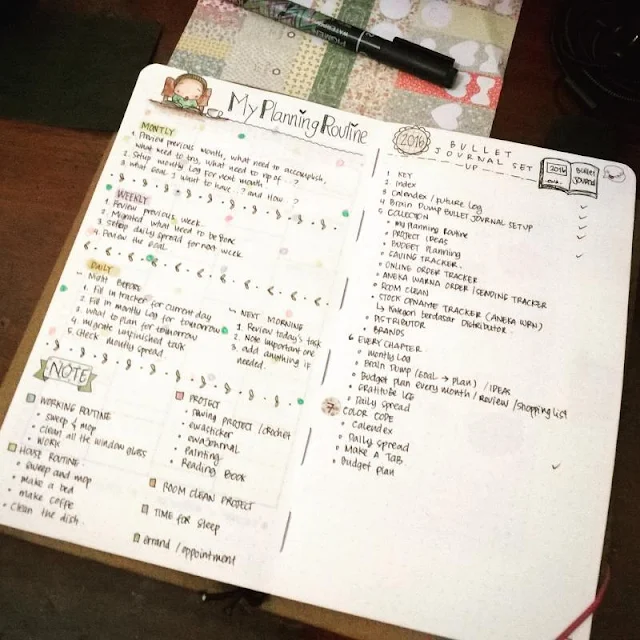 My Planning Routine
MONTLY
1. Preview previous month, what need to accomplish,
what need to try, what need to rip of ?
2. Setup montly log for next month
3. What goal I want to have ? and How ?
WEEKLY
1. Review previous week
2. Migrated what need to be done
3. Setup daily spread for next week
4. Review the Goal.
DAILY
~ Night Before
1. Fill in tracker for current day
2. Fill in montly Log for tomorrow
3. What or plan for tomorrow
4. migrate unfinished task
5. Check montly spread.
~ NEXT MORNING
1. Review today's task
2. Note important one
3. add anything if
needed.
NOTE
WORKING ROUTINE
• sweep & mop
• clean all the window glass
• WORK
HOUSE ROUTINE
• sweep and mop
• make a bed
• make coffe
• clean the dish.
PROJECT
• Saving PROJECT / crochet
• ewasticker
• ewaJournal
• Painting
• Reading BOOK
ROOM CLEAN PROJECT
TIME FOR SLEEP
errand / appointment
2016 BULLET
JOURNAL SET
- UP -
2016 Bullet
Journal
1 KEY
2 Index
3 Calendex / future Log
4 Brain Dump BULLET JOURNAL SETUP
5 COLLECTION
• My Planning Routine
• PROJECT IDEAS
• BUDGET Planning
• SAVING TRACKER.
• ONLINE ORDER TRACKER
• ANEKA WARNA ORDER / SENDING TRACKER
• ROOM CLEAN
• STOCK OPNAME TRACKER (ANEKA WRN)
↳ Kategori berdasar Distributor
• DISTRIBUTOR
• BRANDS
6 EVERY CHAPTER
• Montly Log
• Brain Dump (Goal → plan) / IDEAS
• Budget plan every month / Review / Shopping list
• Gratitude LOG
• Daily Spread
7 COLOR CODE
• Calendex
• Daily Spread
• MAKE A TAB
• Budget plan